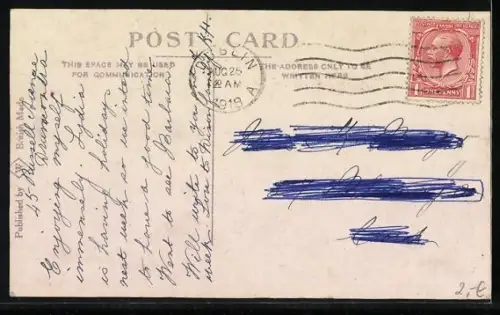 POST CARD
THIS SPACE MAY BE USED
FOR COMMUNICATION
THE ADDRESS ONLY TO BE
WRITTEN HERE
AUG 26
AM
1918
ONE PENNY
Published by
British Made
45 Russell Avenue
Drumcondra
Enjoying myself
immensely. Lydia
is having holidays
next week so we intend
to have a good time
Went to see Barbara
Will write to you next
week. Love to
2,-€